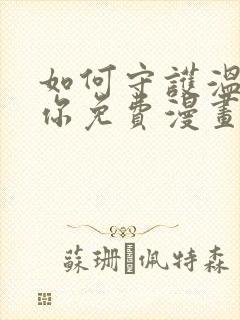 如何守護溫
你免費漫畫
蘇珊佩特森